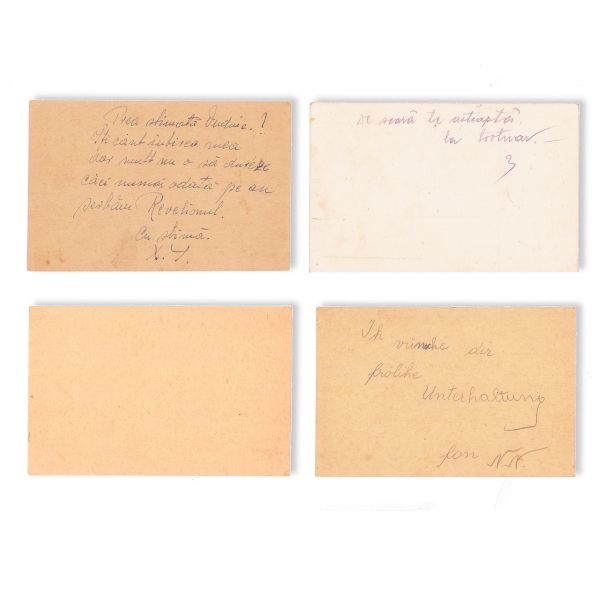 Prea stimată Ouduie.!
Îți cânt iubirea mea
dar mult nu o să dureze
căci numai odată pe an
serbăm Revelionul.
Cu stimă.
X. Y.
se seară te așteaptă
la
Ih vünche dir
frölihe
Unterhaltung
fon N.N.